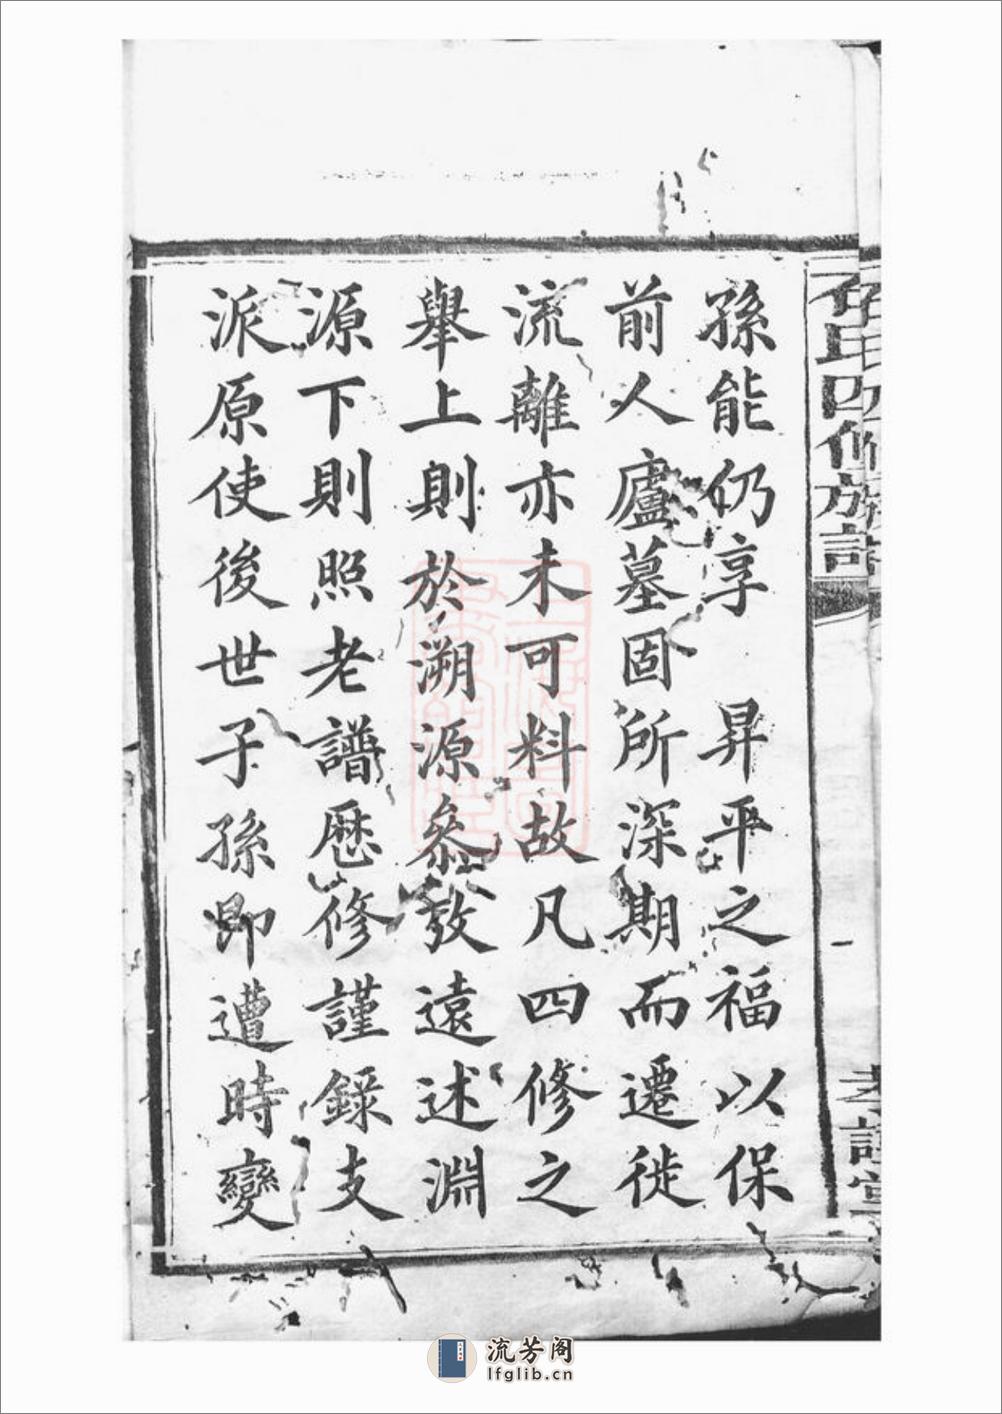 孫能仍享 昇平之福以保
前人廬墓固所深期而遷徙
流離亦未可料故凡四修之
舉上則於溯源叅攷遠述淵
源下則照老譜歷修謹錄支
派原使後世子孫即遭時變
氏四修族譜
一
流芳阁
lfglib.cn